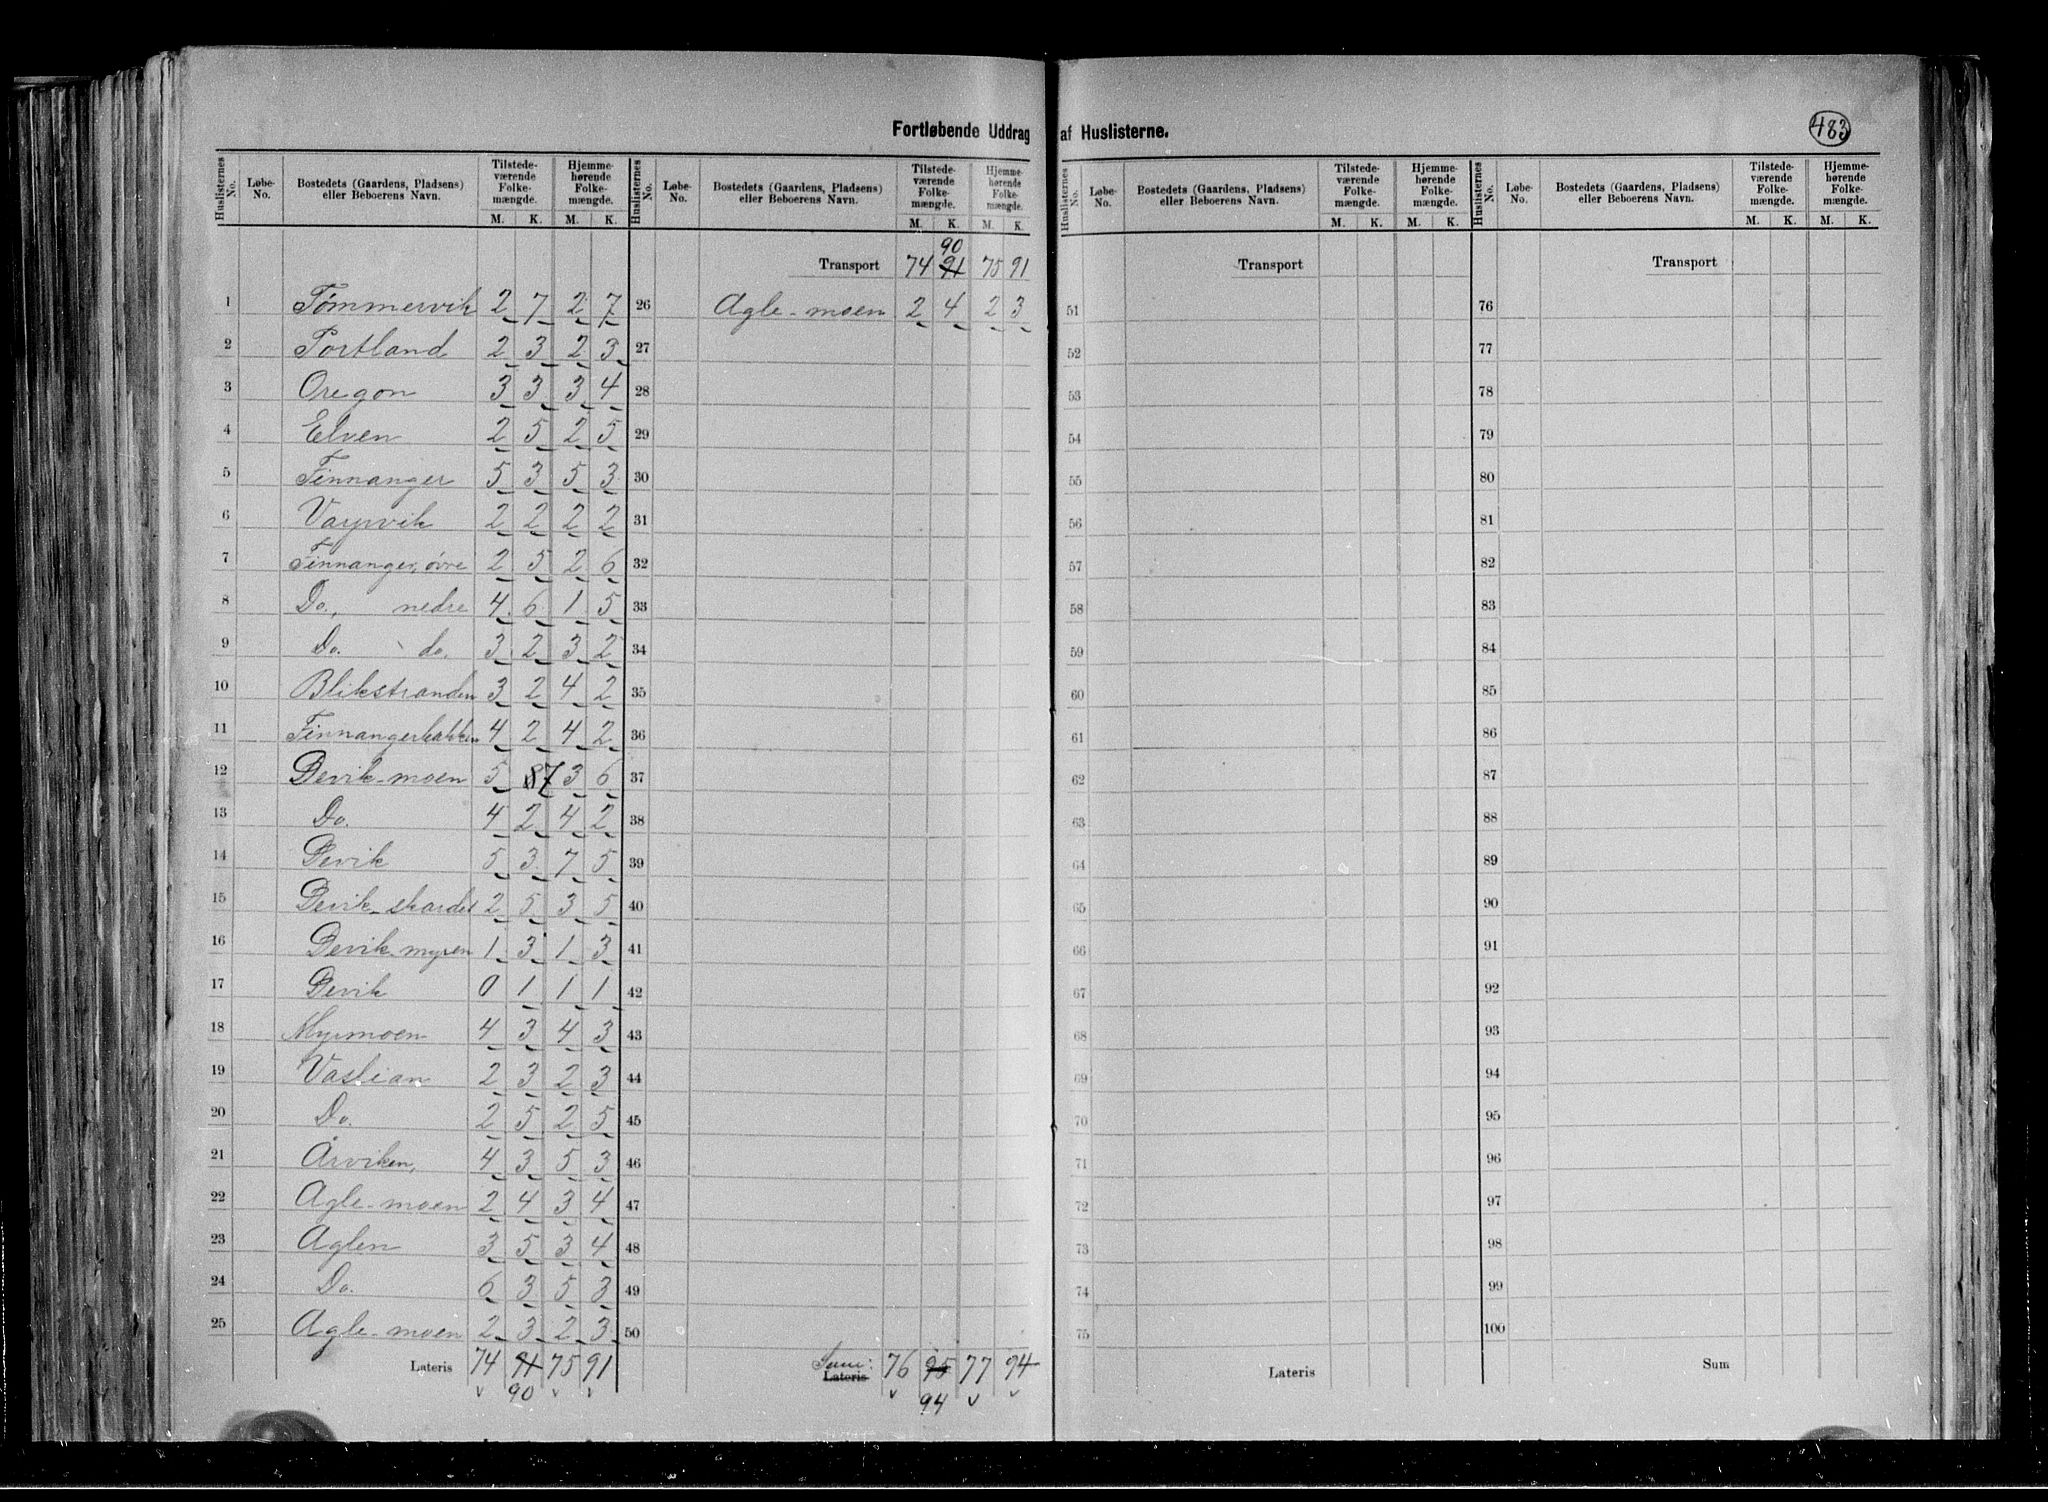 Fortløbende Uddrag af Huslisterne.
483
Huslisternes No. Løbe-No. Bostedets (Gaardens, Pladsen) eller Beboerens Navn. Tilstede-værende Folke-mængde. M. K. Hjemme-hørende Folke-mængde. M. K.
1 Tømmervik 2 7 2 7
2 Portland 2 3 2 3
3 Oregon 3 3 3 4
4 Elven 2 5 2 5
5 Finnanger 5 3 5 3
6 2 2 2 2
7 Finnanger, övre 2 5 2 6
8 Do., nedre 4 6 1 5
9 Do. do. 3 2 3 2
10 Blikstranden 3 2 4 2
11 Finnangerbakken 4 2 4 2
12 Devik-moen 5 8 7 3 6
13 Do. 4 2 4 2
14 Devik 5 3 7 5
15 Devik-skardet 2 5 3 5
16 Devik-myren 1 3 1 3
17 Devik 0 1 1 1
18 Myrmoen 4 3 4 3
19 Vaslian 2 3 2 3
20 Do. 2 5 2 5
21 Årviken, 4 3 5 3
22 Agle-moen 2 4 3 4
23 Aglen 3 5 3 4
24 Do. 6 3 5 3
25 Agle-moen 2 3 2 3
Lateris 74 91 75 91
90
Huslisternes No. Løbe-No. Bostedets (Gaardens, Pladsen) eller Beboerens Navn. Tilstede-værende Folke-mængde. M. K. Hjemme-hørende Folke-mængde. M. K.
90
Transport 74 91 75 91
26 Agle-moen 2 4 2 3
27
28
29
30
31
32
33
34
35
36
37
38
39
40
41
42
43
44
45
46
47
48
49
50
Sum:
Lateris 76 95 77 94
94
Huslisternes No. Løbe-No. Bostedets (Gaardens, Pladsen) eller Beboerens Navn. Tilstede-værende Folke-mængde. M. K. Hjemme-hørende Folke-mængde. M. K.
Transport
51
52
53
54
55
56
57
58
59
60
61
62
63
64
65
66
67
68
69
70
71
72
73
74
75
Lateris
Huslisternes No. Løbe-No. Bostedets (Gaardens, Pladsen) eller Beboerens Navn. Tilstede-værende Folke-mængde. M. K. Hjemme-hørende Folke-mængde. M. K.
Transport
76
77
78
79
80
81
82
83
84
85
86
87
88
89
90
91
92
93
94
95
96
97
98
99
100
Sum